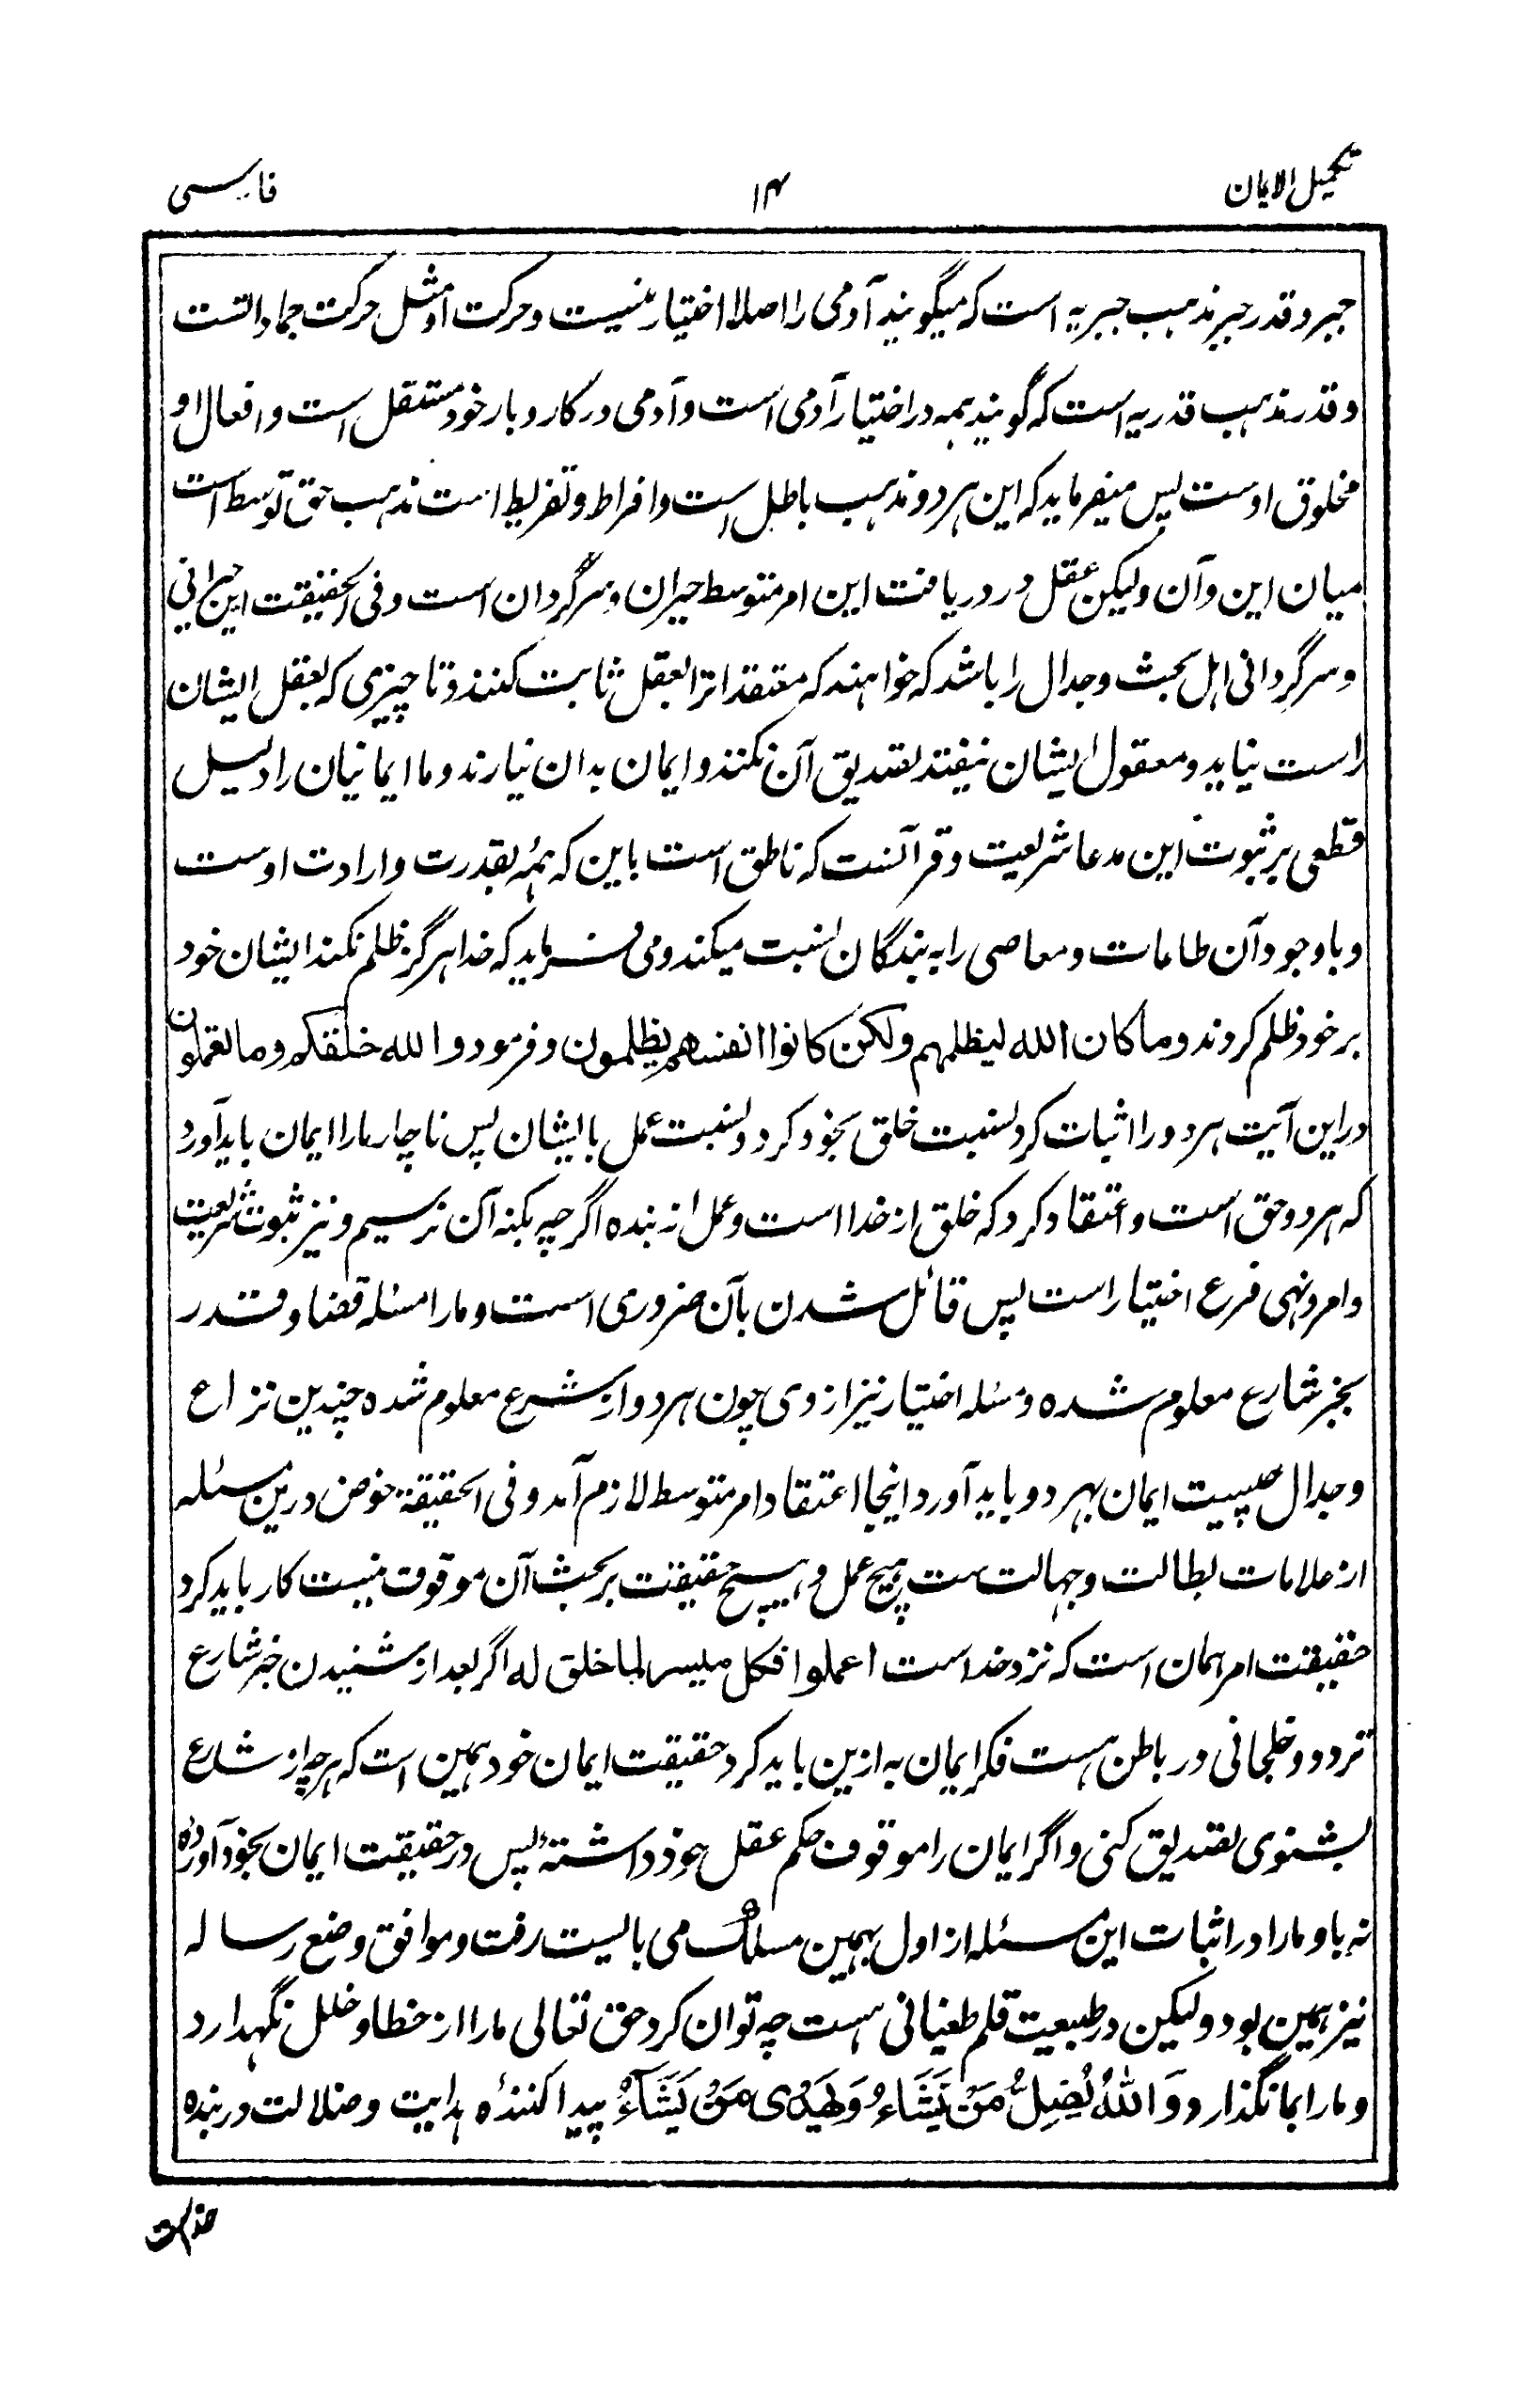 تکمیل الایمان ۱۴ فارسی
جبر و قدر جبر مذہب جبریہ است کہ میگویند آدمی را اصلا اختیار نیست و حرکت او مثل حرکت جمادانست
و قدر مذہب قدریہ است کہ گویند ہمہ در اختیار آدمی است و آدمی در کار و بار خود مستقل است و افعال او
مخلوق اوست پس میفرماید کہ این ہر دو مذہب باطل است و افراط و تفریط است مذہب حق توسط است
میان این و آن و لیکن عقل در دریافت این امر متوسط حیران و سرگردان است و فی الحقیقت این حیرانی
و سرگردانی اہل بحث و جدال را باشد کہ خواہند کہ معتقدات را بعقل ثابت کنند و تا چیزی کہ بعقل ایشان
راست نیاید و معقول ایشان نیفتد تصدیق آن نکنند و ایمان بدان نیارند و ما ایمانیان را دلیل
قطعی بر ثبوت این مدعا شریعت و قرآنست کہ ناطق است باین کہ ہمہ بقدرت و ارادت اوست
و باوجود آن طاعات و معاصی را بہ بندگان نسبت میکند و می فرماید کہ خدا ہرگز ظلم نکند ایشان خود
بر خود ظلم کردند و ما کان الله لیظلمهم ولکن کانوا انفسهم یظلمون و فرمود و الله خلقکم و ما تعملون
در این آیت ہر دو را اثبات کرد نسبت خلق بخود کرد و نسبت عمل بایشان پس ناچار ما را ایمان باید آورد
کہ ہر دو حق است و اعتقاد کرد کہ خلق از خدا است و عمل از بندہ اگرچہ بکنہ آن نرسیم و نیز ثبوت شریعت
و امر و نہی فرع اختیار است پس قائل شدن بآن ضروری است و ما را مسئلہ قضا و قدر
بخبر شارع معلوم شدہ و مسئلہ اختیار نیز از وی چون ہر دو از شرع معلوم شدہ چندین نزاع
و جدال چیست ایمان بہر دو باید آورد اینجا اعتقاد امر متوسط لازم آمد و فی الحقیقۃ خوض درین مسئلہ
از علامات بطالت و جہالت ست ہیچ عمل و ہیچ حقیقت بر بحث آن موقوف نیست کار باید کرد
حقیقت امر ہمان است کہ نزد خداست اعملوا فکل میسر لما خلق لہ اگر بعد از شنیدن خبر شارع
تردد و خلجانی در باطن ہست فکر ایمان بہ ازین باید کرد حقیقت ایمان خود ہمین است کہ ہرچہ از شارع
بشنوی تصدیق کنی و اگر ایمان را موقوف حکم عقل خود داشتۂ پس در حقیقت ایمان بخود آوردہ
نہ باو ما را در اثبات این مسئلہ از اول بہمین مسلک می بایست رفت و موافق وضع رسالہ
نیز ہمین بود و لیکن در طبیعت قلم طغیانی ہست چہ توان کرد حق تعالی ما را از خطا و خلل نگہدارد
و ما را بما نگذارد وَ اللّٰهُ یُضِلُّ مَنْ یَّشَاءُ وَ یَهْدِی مَنْ یَّشَآءُ پیدا کنندۂ ہدایت و ضلالت در بندہ